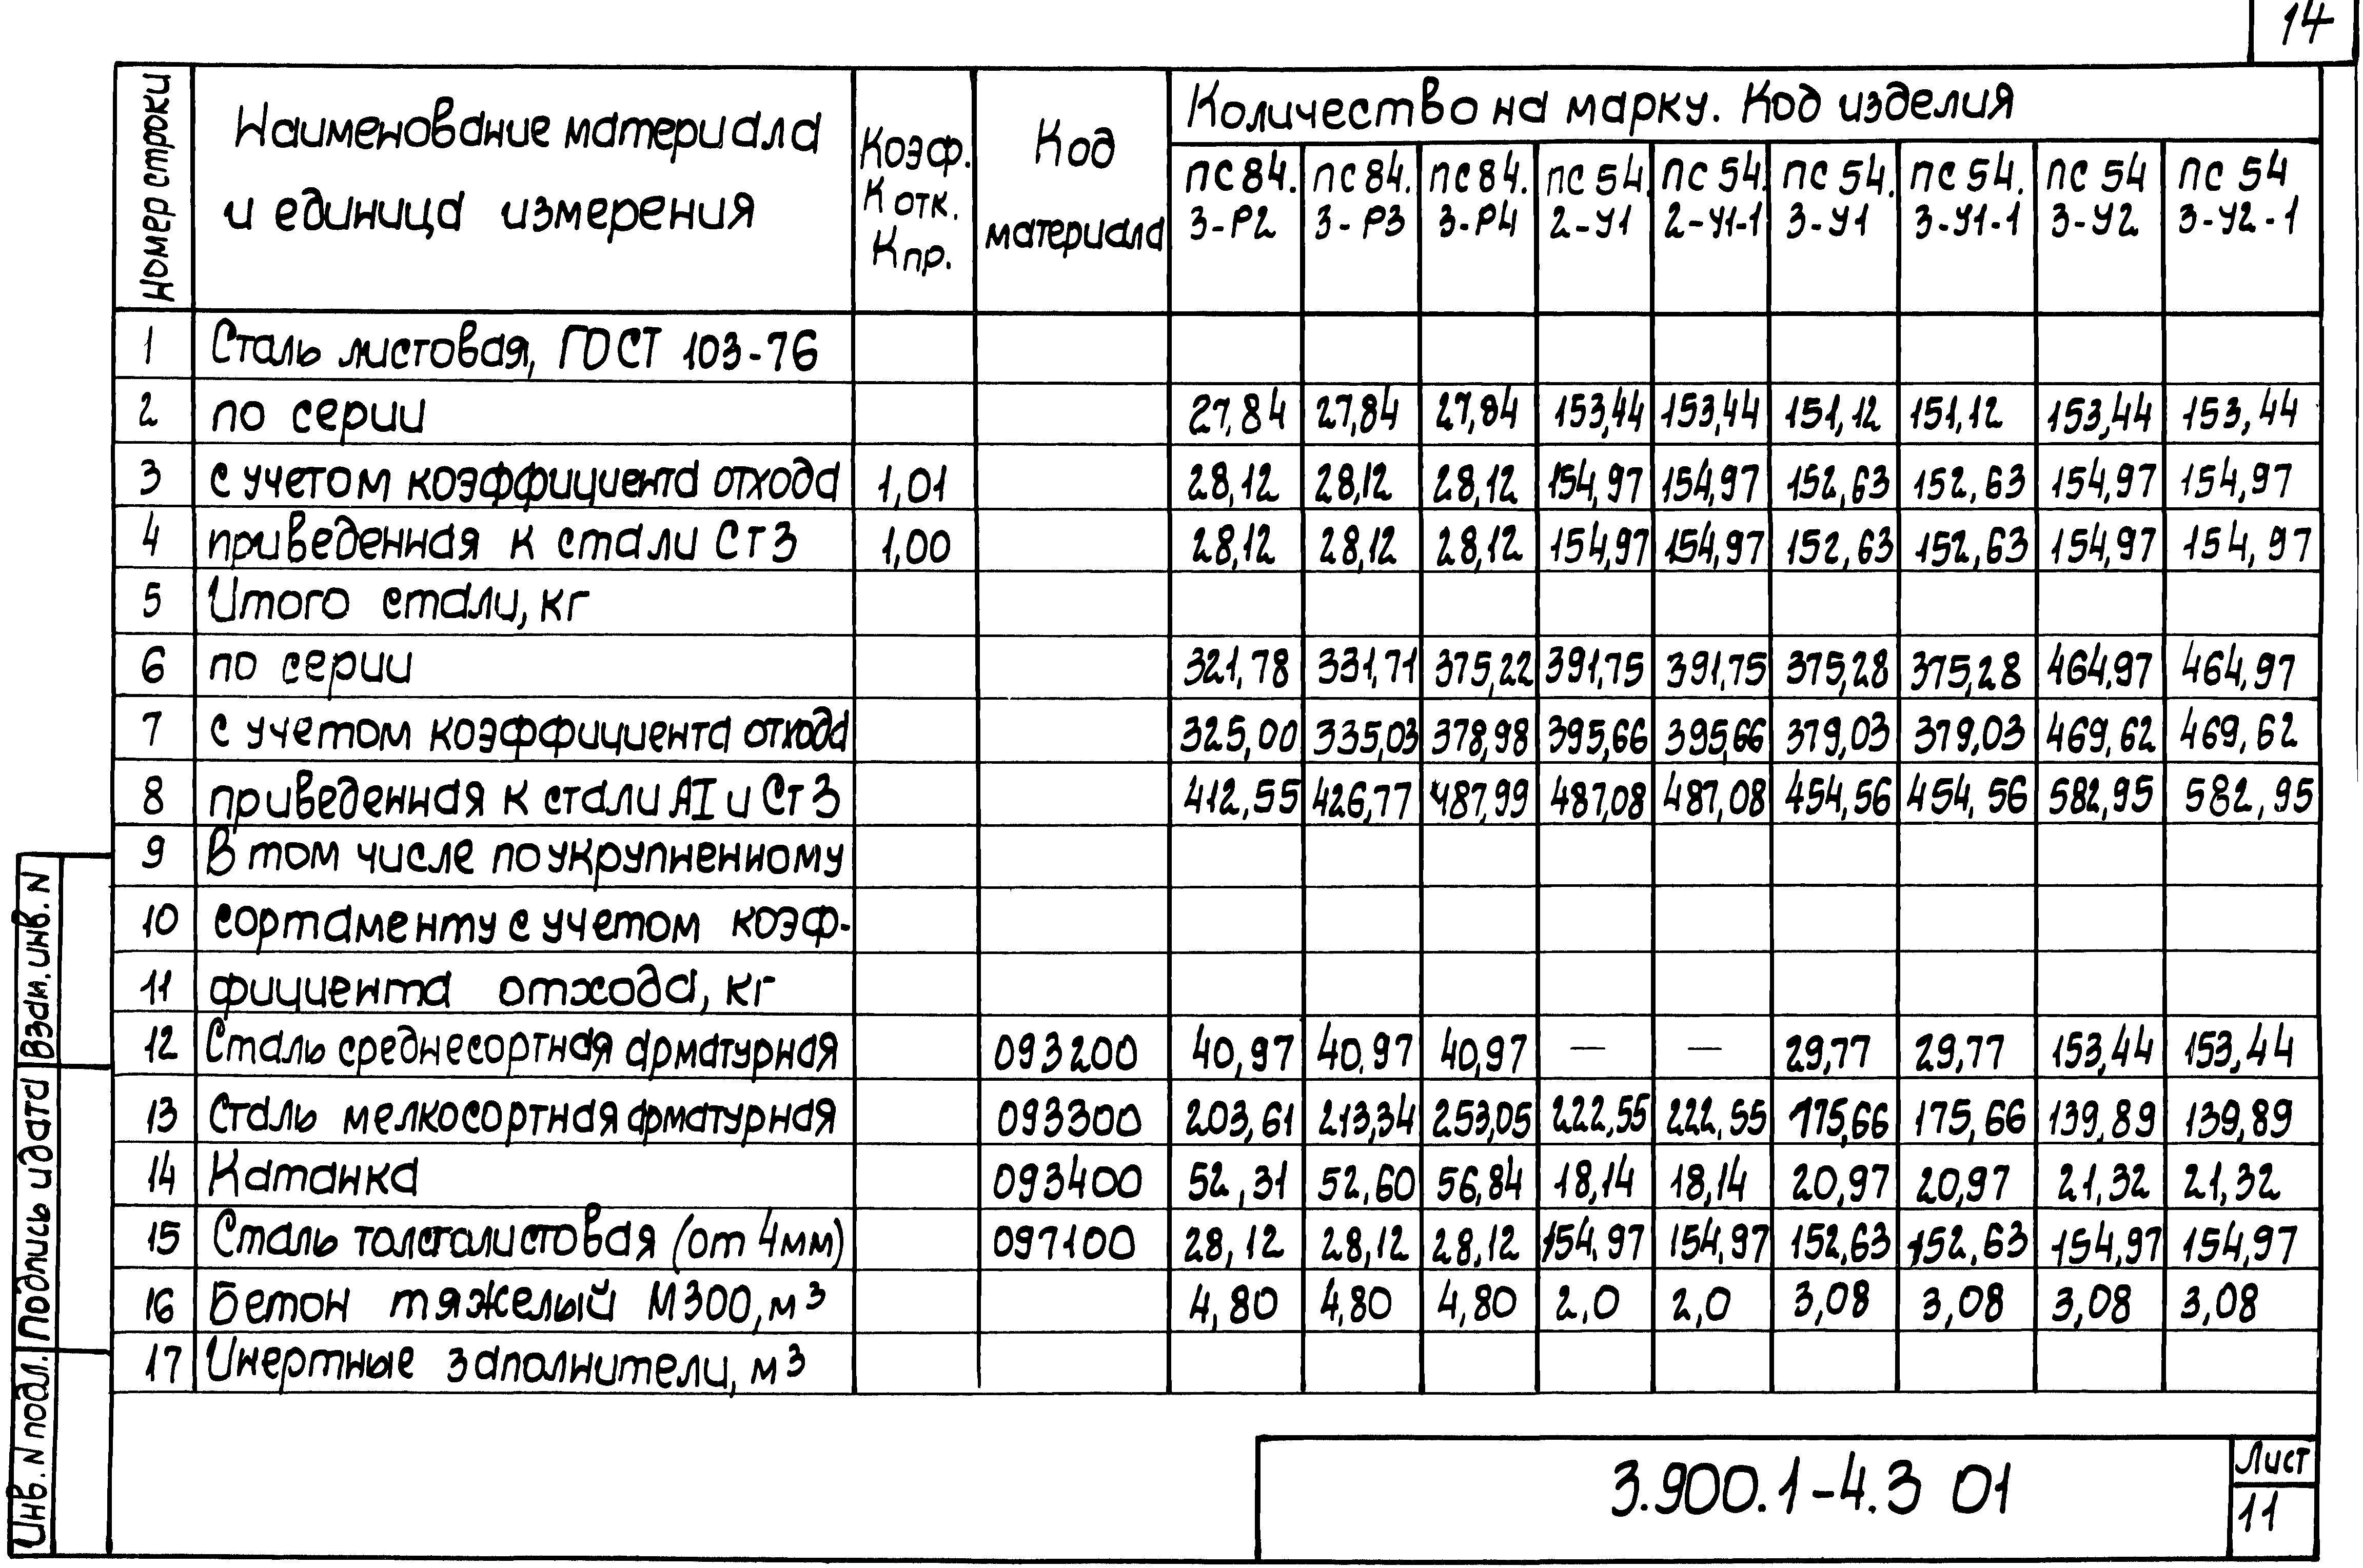 14
Номер строки
Наименование материала
и единица измерения
Коэф.
К отк.
Кпр.
Код
материала
Количество на марку. Код изделия
ПС 84. ПС 84. ПС 84. ПС 54. ПС 54. ПС 54. ПС 54. ПС 54 ПС 54
3-Р2 3-Р3 3-Р4 2-У1 2-У1-1 3-У1 3-У1-1 3-У2 3-У2-1
1 Сталь листовая, ГОСТ 103-76
2 по серии 27,84 27,84 27,84 153,44 153,44 151,12 151,12 153,44 153,44
3 с учетом коэффициента отхода 1,01 28,12 28,12 28,12 154,97 154,97 152,63 152,63 154,97 154,97
4 приведенная к стали Ст3 1,00 28,12 28,12 28,12 154,97 154,97 152,63 152,63 154,97 154,97
5 Итого стали, кг
6 по серии 321,78 331,71 375,22 391,75 391,75 375,28 375,28 464,97 464,97
7 с учетом коэффициента отхода 325,00 335,03 378,98 395,66 395,66 379,03 379,03 469,62 469,62
8 приведенная к стали АI и Ст3 412,55 426,77 487,99 487,08 487,08 454,56 454,56 582,95 582,95
9 В том числе по укрупненному
10 сортаменту с учетом коэф-
11 фициента отхода, кг
12 Сталь среднесортная арматурная 093200 40,97 40,97 40,97 — — 29,77 29,77 153,44 153,44
13 Сталь мелкосортная арматурная 093300 203,61 213,34 253,05 222,55 222,55 175,66 175,66 139,89 139,89
14 Катанка 093400 52,31 52,60 56,84 18,14 18,14 20,97 20,97 21,32 21,32
15 Сталь толстолистовая (от 4мм) 097100 28,12 28,12 28,12 154,97 154,97 152,63 152,63 154,97 154,97
16 Бетон тяжелый М300, м³ 4,80 4,80 4,80 2,0 2,0 3,08 3,08 3,08 3,08
17 Инертные заполнители, м³
Взам. инв. N
Подпись и дата
Инв. N подл.
3.900.1-4.3 01
Лист
11